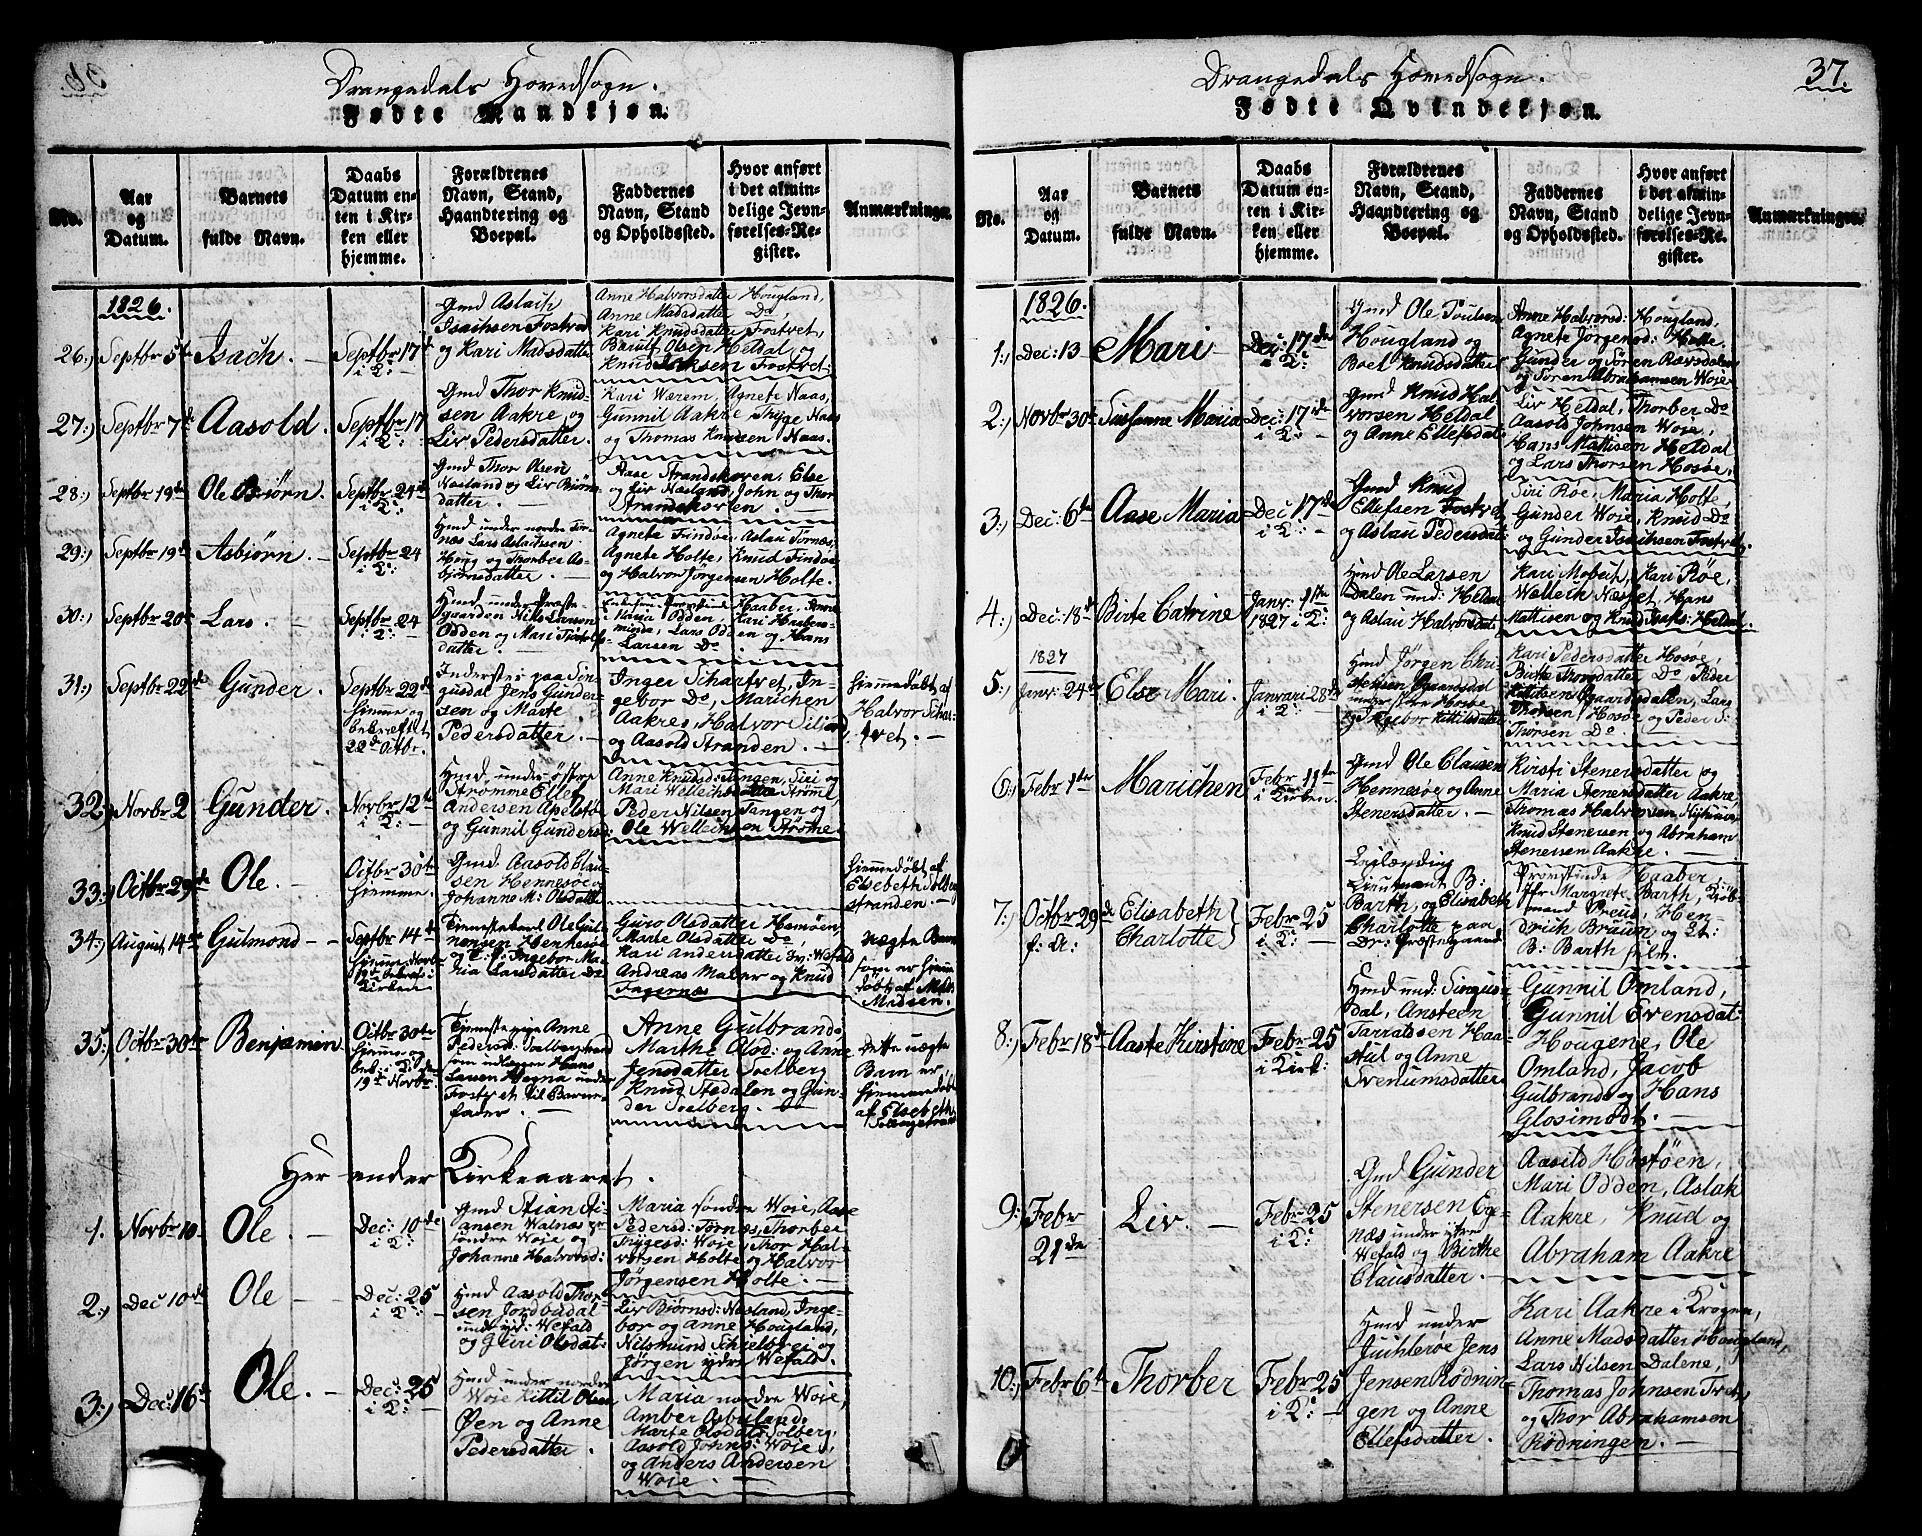 Drangedals Hovedsogn.
Fødte Mandkjøn.
No.
Aar
og
Datum.
Barnets
fulde Navn.
Daabs
Datum en-
ten i Kir-
ken eller
hjemme.
Forældrenes
Navn, Stand,
Haandtering og
Boepæl.
Faddernes
Navn, Stand
og Opholdssted.
Hvor anført
i det almin-
delige Jevn-
førelses-Re-
gister.
Anmærkninger.
1826.
26.) Septbr 5te
Isach.
Septbr 17de
i K:
Gmd Aslach
Isachsen Fostved
og Kari Madsdatter
Anne Halvorsdatter Hougland,
Anne Madsdatter Do,
Kari Knudsdatter Fostvet,
Olsen Heldal og
Knud Fostvet.
27.) Septbr 7de
Aasold.
Septbr 17
i K:
Gmd Thor Knud-
sen Aakre og
Liv Pedersdatter.
Kari Wærem, Agnete Naas,
Gunnil Aakre, Thygge Naas
og Thomas Knudsen Naas.
28.) Septbr 19de
Ole Biørn.
Septbr 24de
i K:
Gmd Thor Olsen
Næsland og Liv Biørns-
datter
Aase Strandskoven, Else
og Liv Næsland, John og Thor
Strandskoven.
29.) Septbr 19de
Asbiørn.
Septbr 24
i K:
Hmd under nordre Tor-
næs Lars Aslachsen
Houg og Thorber As-
bjørnsdatter.
Agnete Findøe, Aslau Tornæs,
Agnete Holte, Knud Findøe
og Halvor Jørgensen Holte.
30.) Septbr 20de
Lars.
Septbr 24
i K:
Hmd under Præste-
gaarden Nils Larsen
Odden og Mari
datter
Haaber, Anne
Maria Odden, Kari
Lars Odden og Hans
Larsen Do.
31.) Septbr 22de
Gunder.
Septbr 22de
hjemme og
bekræftet
22de Octbr.
Inderster paa Sin-
gusdal Jens Gunder-
sen og Marte
Pedersdatter.
Inger Schartvet, In-
gebor Do, Marichen
Aakre, Halvor
og Aasold Stranden.
Hjemmedøbt af
Halvor Schar-
tvet.
32.) Novbr 2
Gunder.
Novbr 12te
i K:
Hmd under østre
Strømme Ellef
Andersen Apelstø
og Gunnil Gunders:
Anne Knudsd: Tangen, Siri og
Mari Wellechsdatter Strøme,
Peder Nilsen Tangen og
Ole Wellechsen Strøme.
33.) Octbr 29de
Ole.
Octbr 30te
hjemme.
Gmd. Aasold Clau-
sen Hennesøe og
Johanne M: Olsdatter
Hjemmedøbt af
Elsebeth Solberg
stranden.
34.) August 14de
Gulmond
Septbr 14de
hjemme, Novbr
i
Kirken.
Tjenestekarl Ole Gul-
monsen Henneseøe
og Ingebor Ma-
ria Larsdatter Do
Guro Olsdatter Hamøen,
Marte Olsdatter Do,
Kari Andersdatter Wefald
Andreas og Knud
Fagernæs
Uægte Barn
som er hjemme
døbt af
Madsen.
35.) Octbr 30te
Benjamin
Octbr 30te
hjemme og
19de Novbr
Tjenestepige Anne
Pedersd:
som udlægger Hans
Larsen Hegna under
Fostvet til Barne-
fader.
Anne Gulbrands
Marthe Olsd: og Anne
Jensdatter Solberg
Knud Stedalen og Gun-
der Solberg.
Dette uægte
Barn er
hjemmedøbt
af Elsebeth
Her ender Kirkeaaret.
1. Novbr 10
Ole.
Dec: 10de
i K:
Gmd Stian Sti-
ansen Walnæs
søndre Woie og
Johanne Halvorsd:
Maria søndre Woie, Aase
Pedersd: Tornæs, Thorber
Thygesd: Woie, Thor Hal-
vorsen Holte og Halvor
Jørgensen Holte.
2.) Dec 10de
Ole
Dec: 25
i K:
Hmd Aasold Thor-
sen Jordbudal
und: yd: Wefald
og Giuri Olsdat:
Liv Biørnsd: Næsland, Inge-
bor og Anne Hougland,
Nilsmund Schielbrei og
Jørgen ydre Wefald.
3.) Dec: 16de
Ole.
Dec: 25
i K:
Hmd under nordre
Woie Kittil Olsen
Øen og Anne
Pedersdatter.
Maria nordre Woie,
Amber Aabuland,
Marte Olsdat: Solberg,
Aasold Johns: Woie,
og Anders Andersen
Woie.
Drangedals Hovedsogn.
37.
Fødte Qvindekjøn.
No.
Aar
og
Datum.
Barnets
fulde Navn.
Daabs
Datum en-
ten i Kir-
ken eller
hjemme.
Forældrenes
Navn, Stand,
Haandtering og
Boepæl.
Faddernes
Navn, Stand
og Opholdssted.
Hvor anført
i det almin-
delige Jevn-
førelses-Re-
gister.
Anmærkninger.
1826.
1.) Dec: 13
Mari
Dec: 17de
i K:
Gmd Ole Poulsen
Hougland og
Boel Knudsdatter
Anne Halvorsd: Hougland,
Agnete Jørgensd: Holte,
Gunder og Søren Rævsdalen
og Søren Abrahamsen Woie.
2.) Novbr 30te
Susanne Maria
Dec: 17de
i K:
Gmd Knud Hal-
vorsen Heldal
og Anne Ellefsdat:
Liv Heldal, Thorber Do
Aasold Johnsen Woie,
Hans Mattisen Heldal
og Lars Thorsen Hosøe.
3.) Dec: 6te
Aase Maria
Dec 17de
i K:
Gmd Knud
Ellefsen Fostvet
og Aslau Pedersdat:
Siri Røe, Maria Holte,
Gunder Woie, Knud Do
og Gunder Isachsen Fostvet.
4.) Dec: 18de
Birte Catrine
Janvr: 1ste
1827 i K:
Hmd Ole Larsen
Dalen und: Heldal
og Aslau Halvorsdat:
Kari Moheit, Kari Røe,
Welleik Næsset, Hans
Mattisen og Knud Isaks: Heldal.
1827
5.) Janvr: 24de
Else Mari.
Janvari 28de
i K:
Hmd Jørgen Chri-
stensen Gaardsdal
under store Hosøe
og Ingebor Kittilsdatter
Kari Pedersdatter Hosøe,
Birte Thorsdatter Do, Peder
Gaardsdalen, Lars
Thorsen Hosøe og Peder
Thorsen Do.
6.) Febr 1ste
Marichen
Febr 11te
i Kirken.
Gmd Ole Clausen
Hennesøe og Anne
Stenersdatter.
Kirsti Stenersdatter og
Maria Stenersdatter Aakre,
Thomas Halvorsen
Knud Stenersen og Abraham
Stenersen Aakre.
7.) Octbr 29de
f: A:
Elisabeth
Charlotte
Febr 25
i K:
Lieutnant B:
Barth, og Elisabeth
Charlotte paa
Dr: Præstegaard
Haaber,
Jfr Margrete Barth, Kjøb-
mand Preus, Hen-
drich Braun og Lt:
B: Barth selv.
8.) Febr 18de
Aaste Kirstine
Febr 25
i Kirk:
Hmd und: Singus-
dal, Ansteen
Tarraldsen Haa-
tul og Anne
Svenumsdatter
Gunnil Omland,
Gunnil Evensdat:
Hougene, Ole
Omland, Jacob
Gulbrands og Hans
Glosimodt.
9.) Febr
21de
Liv.
Febr 25
i K:
Gmd Gunder
Stenersen Eg-
næs under ytre
Wefald og Birthe
Clausdatter.
Aasild Høstøen,
Mari Odden, Aslak
Aakre, Knud og
Abraham Aakre
10.) Febr 6te
Thorber
Febr 25
i K:
Hmd under
Juchlerøe Jens
Jensen Rødnin-
gen og Anne
Ellefsdatter.
Kari Aakre i Krogen,
Anne Madsdatter Hougland,
Lars Nilsen Dalene,
Thomas Johnsen Tvet,
og Thor Abrahamsen
Rødningen.